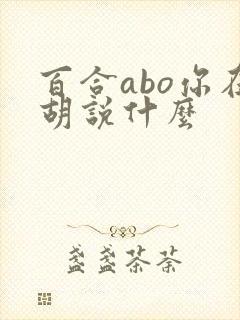 百合abo你在
胡說什麼
盞盞茶荼